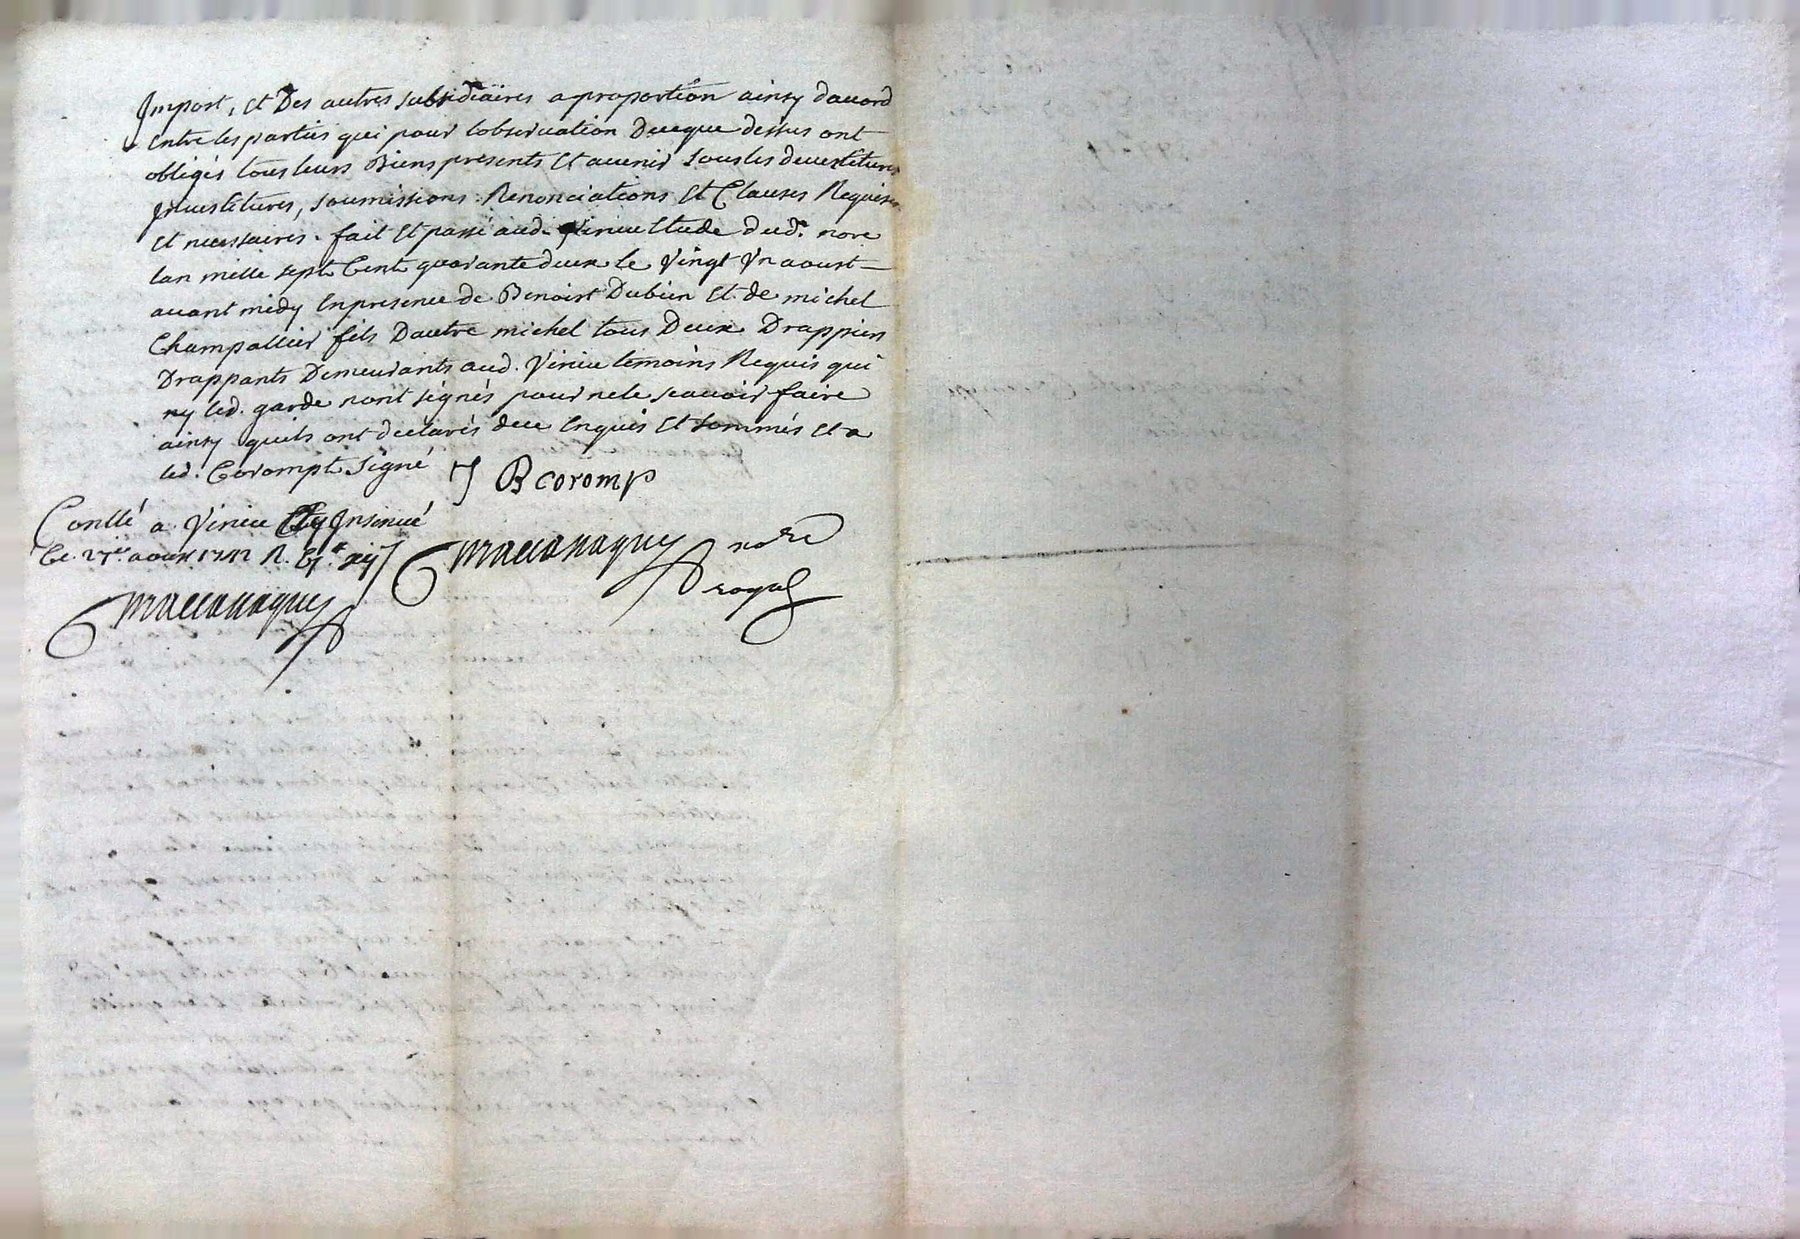 Import, et Des autres subsidiaires a proportion ainsy dacord
Entre les parties qui pour lobservation Dece que dessus ont
obligés tous leurs Biens presents Et avenir sous les devestitures
Investitures, soumissions Renonciations Et Clauses Requises
Et necessaires. fait Et passé aud. Virieu Etude dud. nore
lan mille sept Cent quarante deux le Vingt Vn aoust
avant midy En presence de Benoist Dubien Et de michel
Champallier fils Dautre michel tous Deux Drappiers
Drappants Demeurants aud. Virieu temoins Requis qui
ny led. garde nont signés pour ne le scavoir faire
ainsy quils ont declarés dece Enquis Et sommés Et a
led. Corompt Signé
J B coromp
Conllé a Virieu Et Insinué
Le aoust 1742 R.
nore
royal